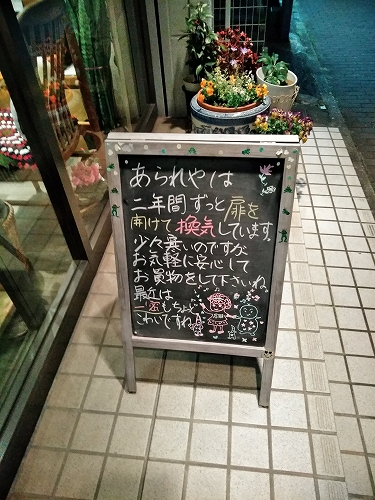 あられやは
二年間ずっと扉を
開けて換気しています。
少々寒いのですが
お気軽に安心して
お買物をして下さいね
最近は
もちょっと
こわいですね!